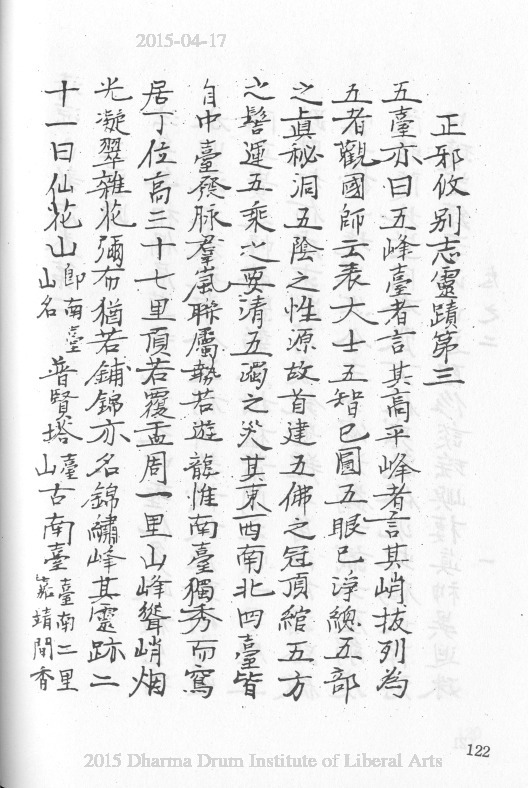 2015-04-17
正邪攸別志靈蹟第三
五臺亦曰五峰臺者言其高平峰者言其峭拔列為
五者觀國師云表大士五智已圓五眼已淨總五部
之眞秘洞五陰之性源故首建五佛之冠頂綰五方
之髻運五乘之要清五濁之災其東西南北四臺皆
自中臺發脉羣嵐聯屬勢若遊龍惟南臺獨秀而窵
居丁位高三十七里頂若覆盂周一里山峰聳峭烟
光凝翠雜花彌布猶若鋪錦亦名錦繡峰其靈跡二
十一曰仙花山即南臺山名普賢塔臺山古南臺臺南二里靖間香
122
2015 Dharma Drum Institute of Liberal Arts